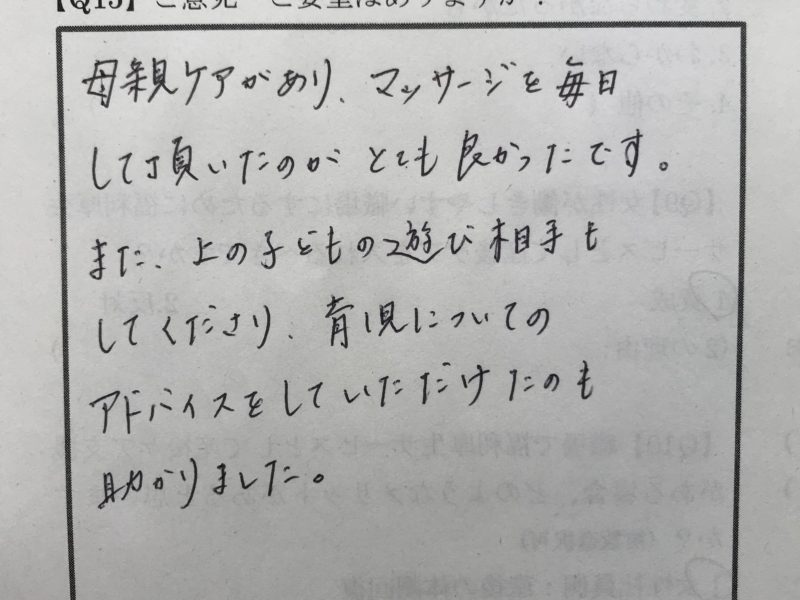 【Q15】ご意見・ご要望はありますか？
母親ケアがあり、マッサージを毎日
して頂いたのが とても 良かったです。
また、上の子どもの遊び相手も
してくださり、育児についての
アドバイスをしていただけたのも
助かりました。